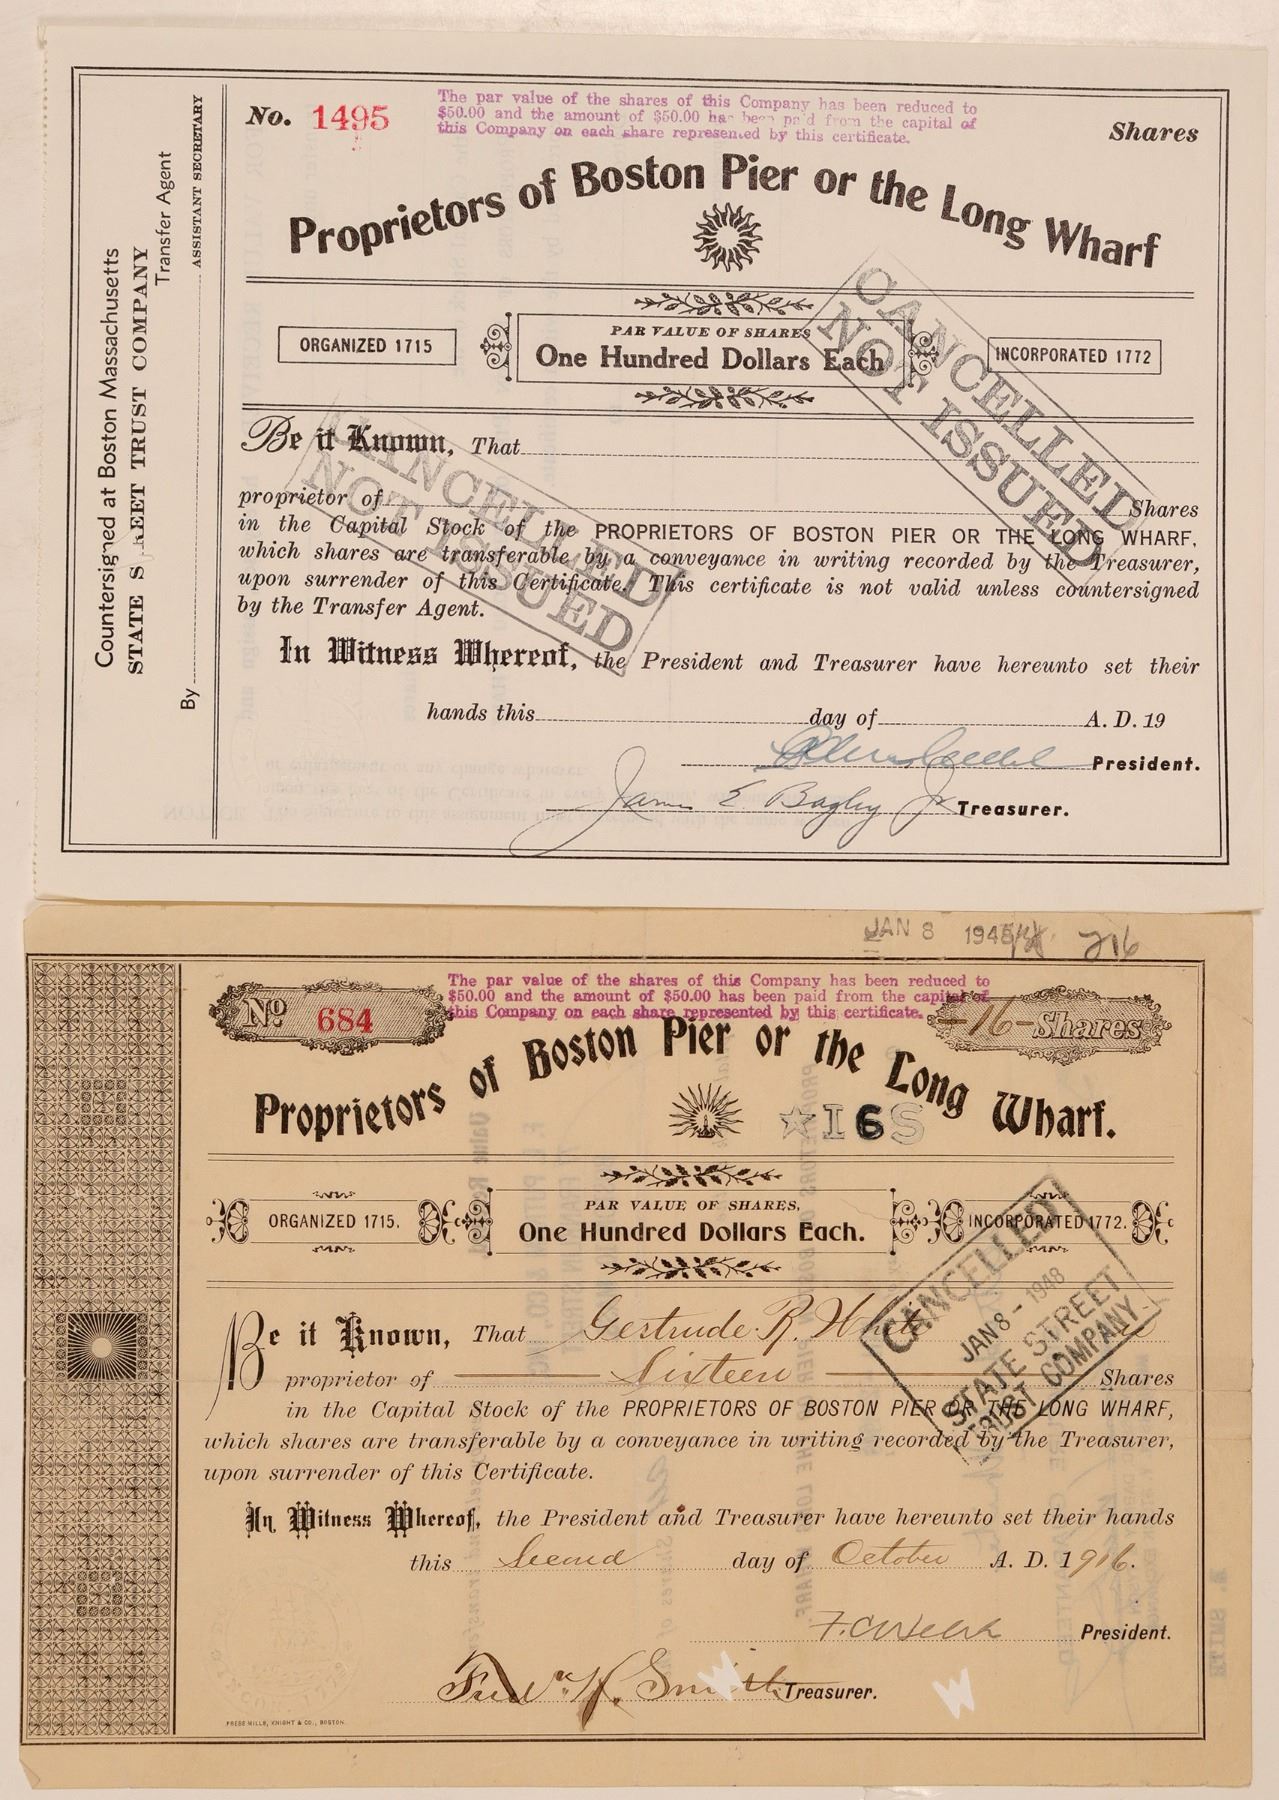 No. 1495
The par value of the shares of this Company has been reduced to
$50.00 and the amount of $50.00 has been paid from the capital of
this Company on each share represented by this certificate.
Shares
Proprietors of Boston Pier or the Long Wharf
ORGANIZED 1715
PAR VALUE OF SHARES
One Hundred Dollars Each
INCORPORATED 1772
CANCELLED
NOT ISSUED
CANCELLED
NOT ISSUED
Be it Known, That
proprietor of Shares
in the Capital Stock of the PROPRIETORS OF BOSTON PIER OR THE LONG WHARF,
which shares are transferable by a conveyance in writing recorded by the Treasurer,
upon surrender of this Certificate. This certificate is not valid unless countersigned
by the Transfer Agent.
In Witness Whereof, the President and Treasurer have hereunto set their
hands this day of A. D. 19
President.
James E. Bagley Jr. Treasurer.
Countersigned at Boston Massachusetts
STATE STREET TRUST COMPANY
Transfer Agent
By ASSISTANT SECRETARY
JAN 8 1948 216
No 684
The par value of the shares of this Company has been reduced to
$50.00 and the amount of $50.00 has been paid from the capital of
this Company on each share represented by this certificate.
-16- Shares
Proprietors of Boston Pier or the Long Wharf.
★16S
ORGANIZED 1715.
PAR VALUE OF SHARES,
One Hundred Dollars Each.
INCORPORATED 1772.
CANCELLED
JAN 8 - 1948
STATE STREET
TRUST COMPANY
Be it Known, That Gertrude R. White is
proprietor of Sixteen Shares
in the Capital Stock of the PROPRIETORS OF BOSTON PIER OR THE LONG WHARF,
which shares are transferable by a conveyance in writing recorded by the Treasurer,
upon surrender of this Certificate.
In Witness Whereof, the President and Treasurer have hereunto set their hands
this Second day of October A. D. 1916.
President.
Fred'k H. Smith Treasurer.
W W
PRESS MILLS, KNIGHT & CO., BOSTON.